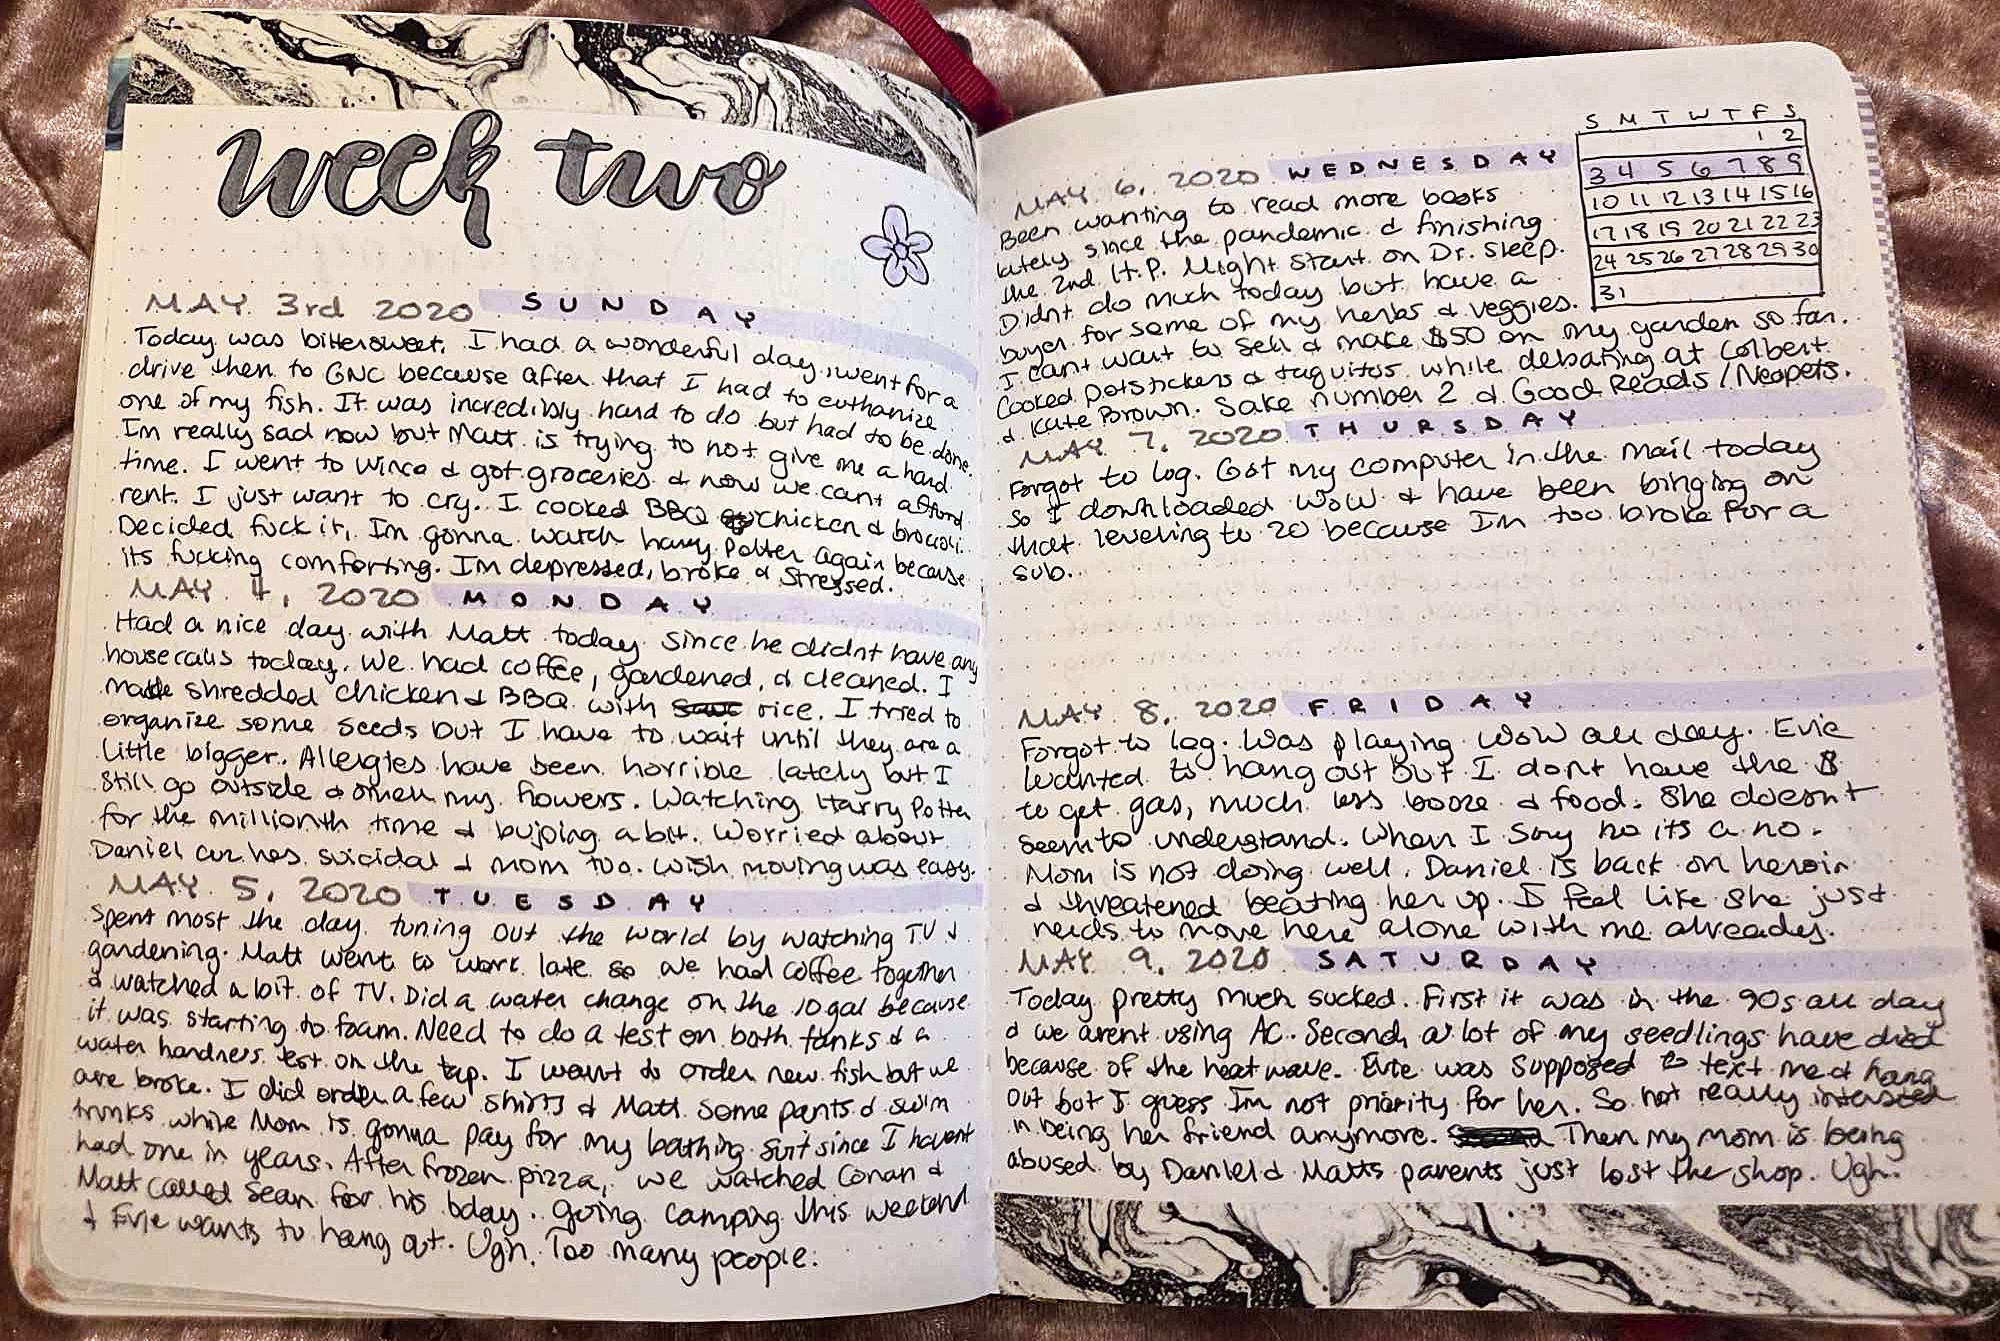 week two
MAY 3rd 2020 SUNDAY
Today was bittersweet. I had a wonderful day, went for a
drive then to GNC because after that I had to euthanize
one of my fish. It was incredibly hard to do but had to be done.
Im really sad now but Matt is trying to not give me a hard
time. I went to Winco & got groceries & now we cant afford
rent. I just want to cry. I cooked BBQ chicken & broccoli.
Decided fuck it, Im gonna watch harry Potter again because
its fucking comforting. Im depressed, broke & stressed.
MAY 4, 2020 MONDAY
Had a nice day with Matt today since he didnt have any
housecalls today. We had coffee, gardened, & cleaned. I
made shredded chicken & BBQ with rice. I tried to
organize some seeds but I have to wait until they are a
little bigger. Allergies have been horrible lately but I
still go outside & smell my flowers. Watching Harry Potter
for the millionth time & bujoing a bit. Worried about
Daniel cuz hes suicidal & mom too. Wish moving was easy.
MAY 5, 2020 TUESDAY
Spent most the day tuning out the world by watching TV &
gardening. Matt went to work late so we had coffee together
& watched a bit of TV. Did a water change on the 10 gal because
it was starting to foam. Need to do a test on both tanks & a
water hardness test on the tap. I want to order new fish but we
are broke. I did order a few shirts & Matt some pants & swim
trunks while Mom is gonna pay for my bathing suit since I havent
had one in years. After frozen pizza, we watched Conan &
Matt called Sean for his bday. Going camping this weekend
& Evie wants to hang out. Ugh. Too many people.
S M T W T F S
1 2
3 4 5 6 7 8 9
10 11 12 13 14 15 16
17 18 19 20 21 22 23
24 25 26 27 28 29 30
31
MAY 6, 2020 WEDNESDAY
Been wanting to read more books
lately since the pandemic & finishing
the 2nd H.P. Might start on Dr. Sleep.
Didnt do much today but have a
buyer for some of my herbs & veggies.
I cant wait to sell & make $50 on my garden so far.
Cooked potstickers & taquitos while debating at Colbert
& Kate Brown. Sake number 2 & Good Reads / Neopets.
MAY 7, 2020 THURSDAY
Forgot to log. Got my computer in the mail today
so I downloaded WoW & have been binging on
that leveling to 20 because Im too broke for a
sub.
MAY 8, 2020 FRIDAY
Forgot to log. Was playing WoW all day. Evie
wanted to hang out but I dont have the $
to get gas, much less booze & food. She doesnt
seem to understand. When I say no its a no.
Mom is not doing well. Daniel is back on heroin
& threatened beating her up. I feel like she just
needs to move here alone with me already.
MAY 9, 2020 SATURDAY
Today pretty much sucked. First it was in the 90s all day
& we arent using AC. Second, a lot of my seedlings have died
because of the heat wave. Evie was supposed to text me & hang
out but I guess Im not priority for her. So not really interested
in being her friend anymore. Then my mom is being
abused by Daniel & Matts parents just lost the shop. Ugh.